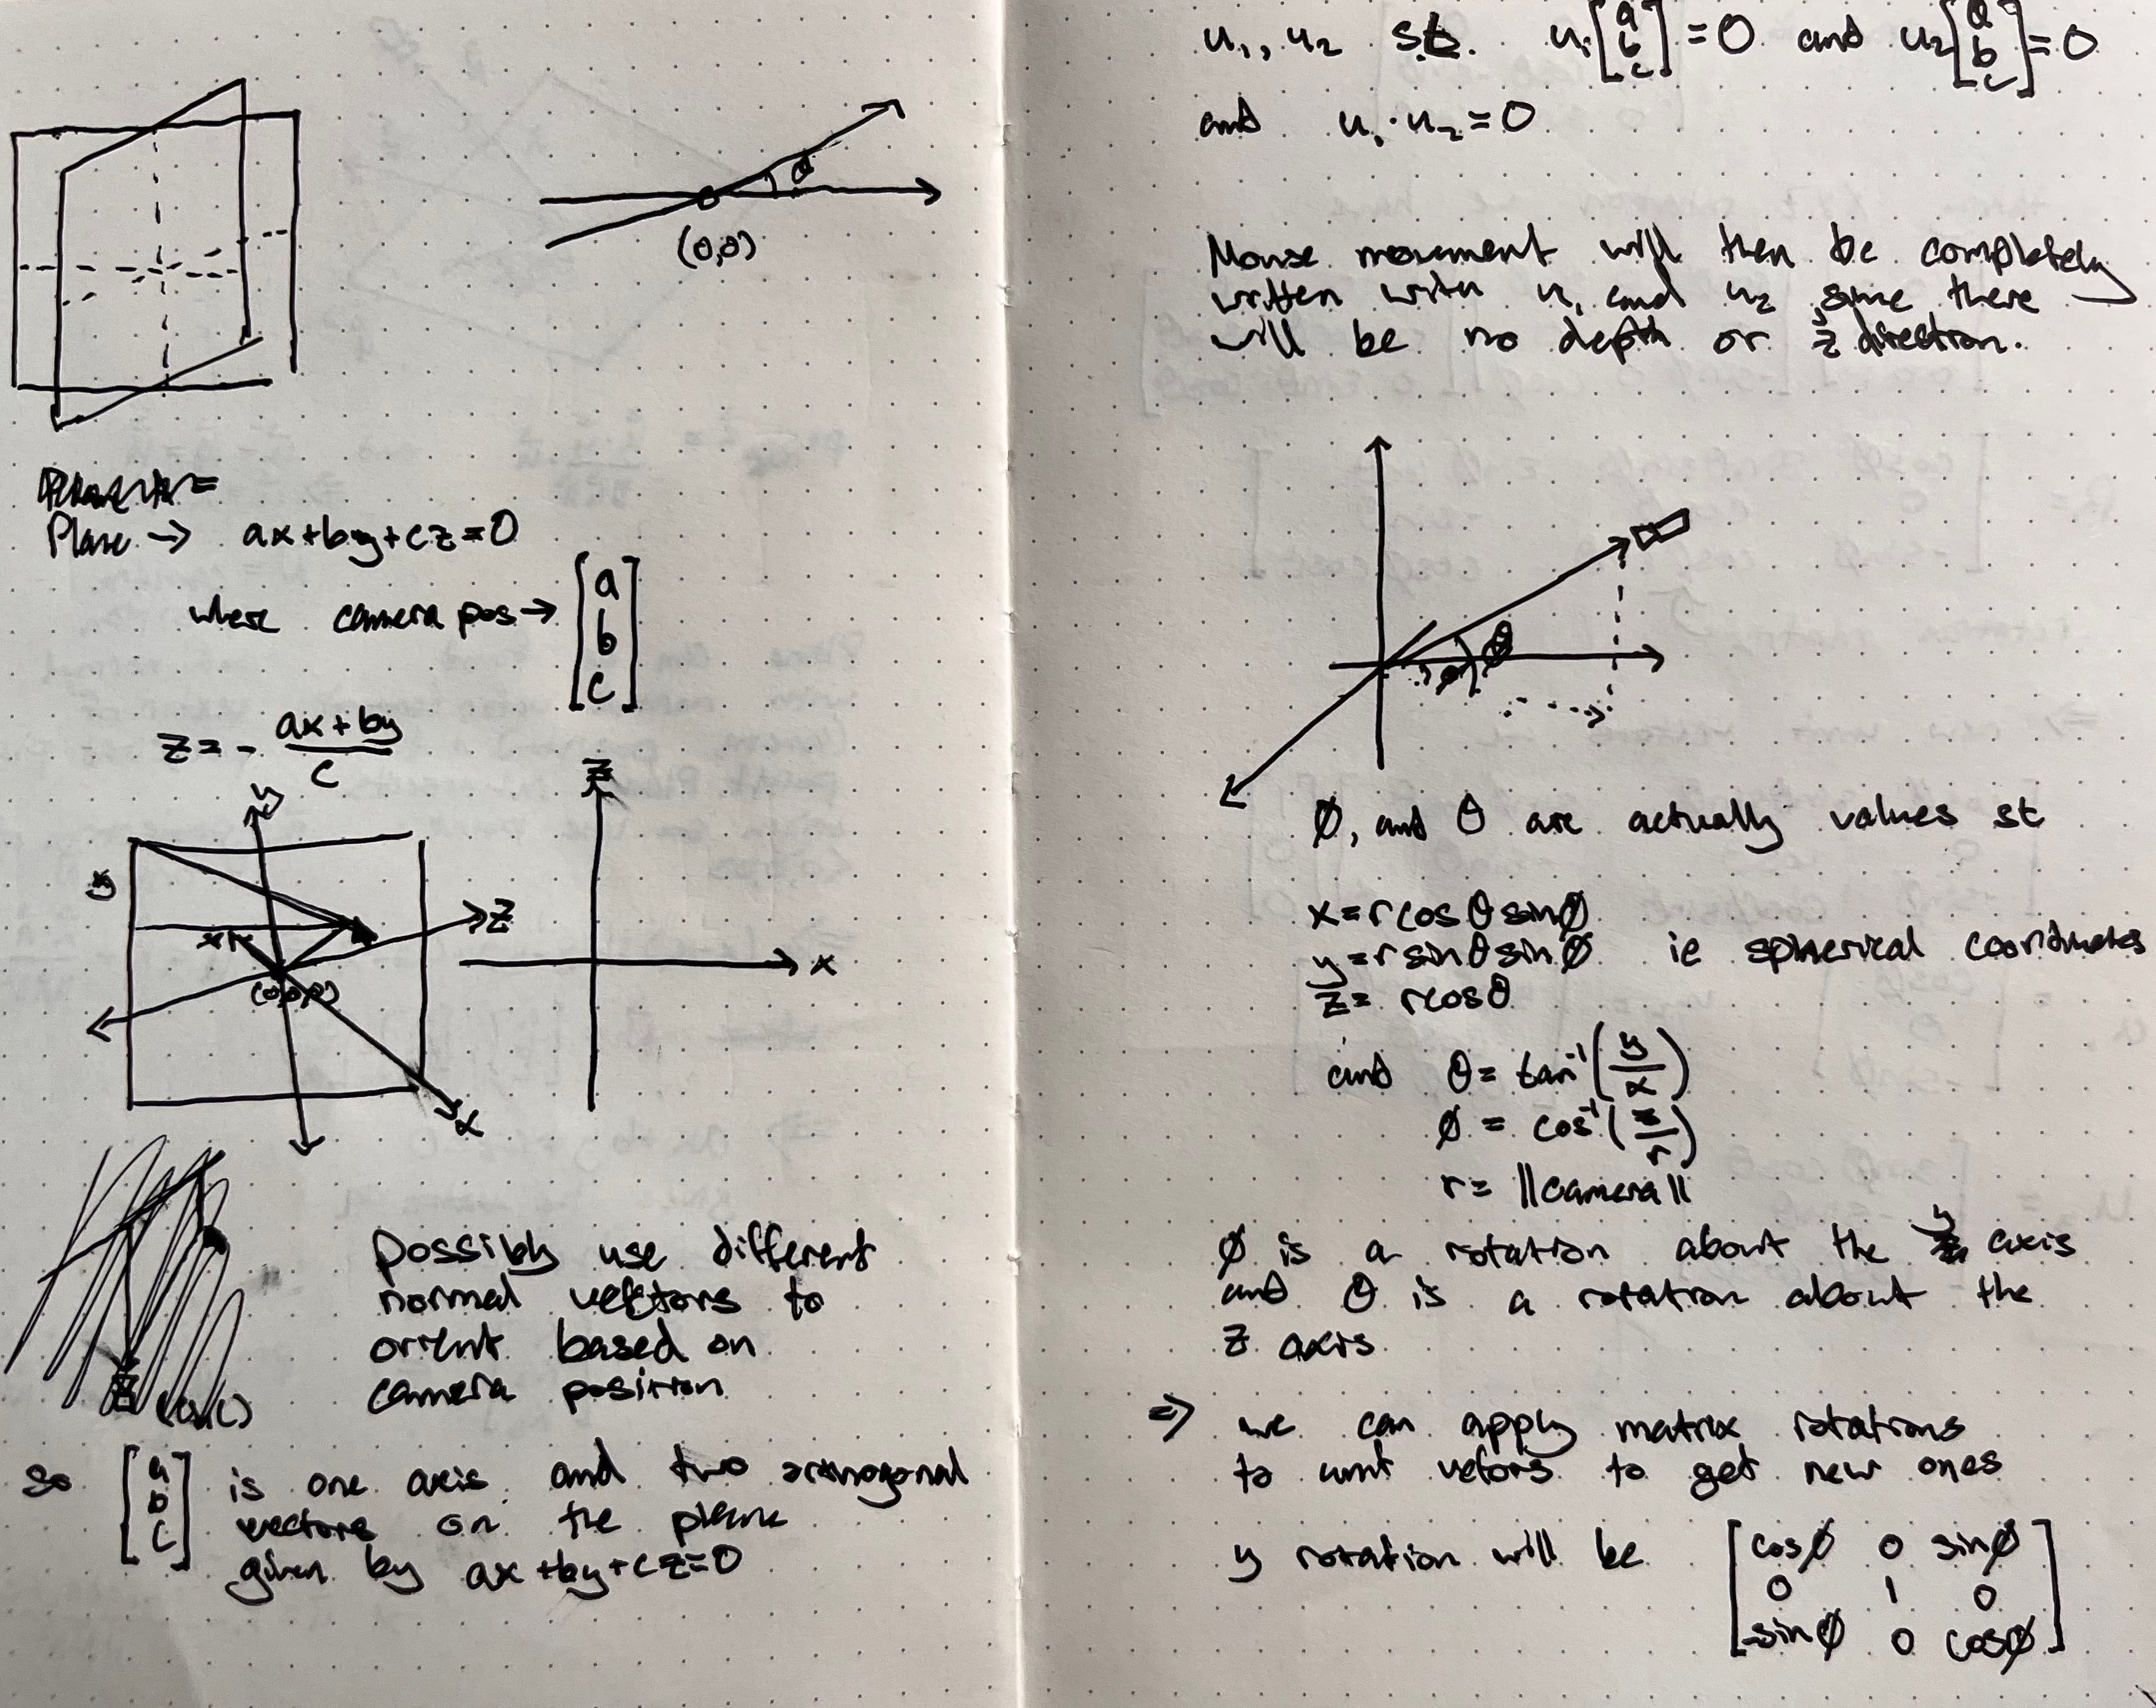 (0,0)
Plane → ax+by+cz=0
where camera pos→ [a b c]
z = - (ax+by)/c
y
z
(0,0,0)
x
z
x
possibly use different
normal vectors to
orient based on
camera position
so [a b c] is one axis and two orthogonal
vectors on the plane
given by ax+by+cz=0
u₁, u₂ st. u₁[a b c]=0 and u₂[a b c]=0
and u₁·u₂=0
Mouse movement will then be completely
written with u₁ and u₂, since there
will be no depth or z direction.
θ
ø
ø, and θ are actually values st
x=rcosθsinø
y=rsinθsinø ie spherical coordinates
z= rcosθ
and θ= tan⁻¹(y/x)
ø = cos⁻¹(z/r)
r= ||camera||
ø is a rotation about the y axis
and θ is a rotation about the
z axis
⇒ we can apply matrix rotations
to unit vetors to get new ones
y rotation will be [cosø 0 sinø
0 1 0
-sinø 0 cosø]